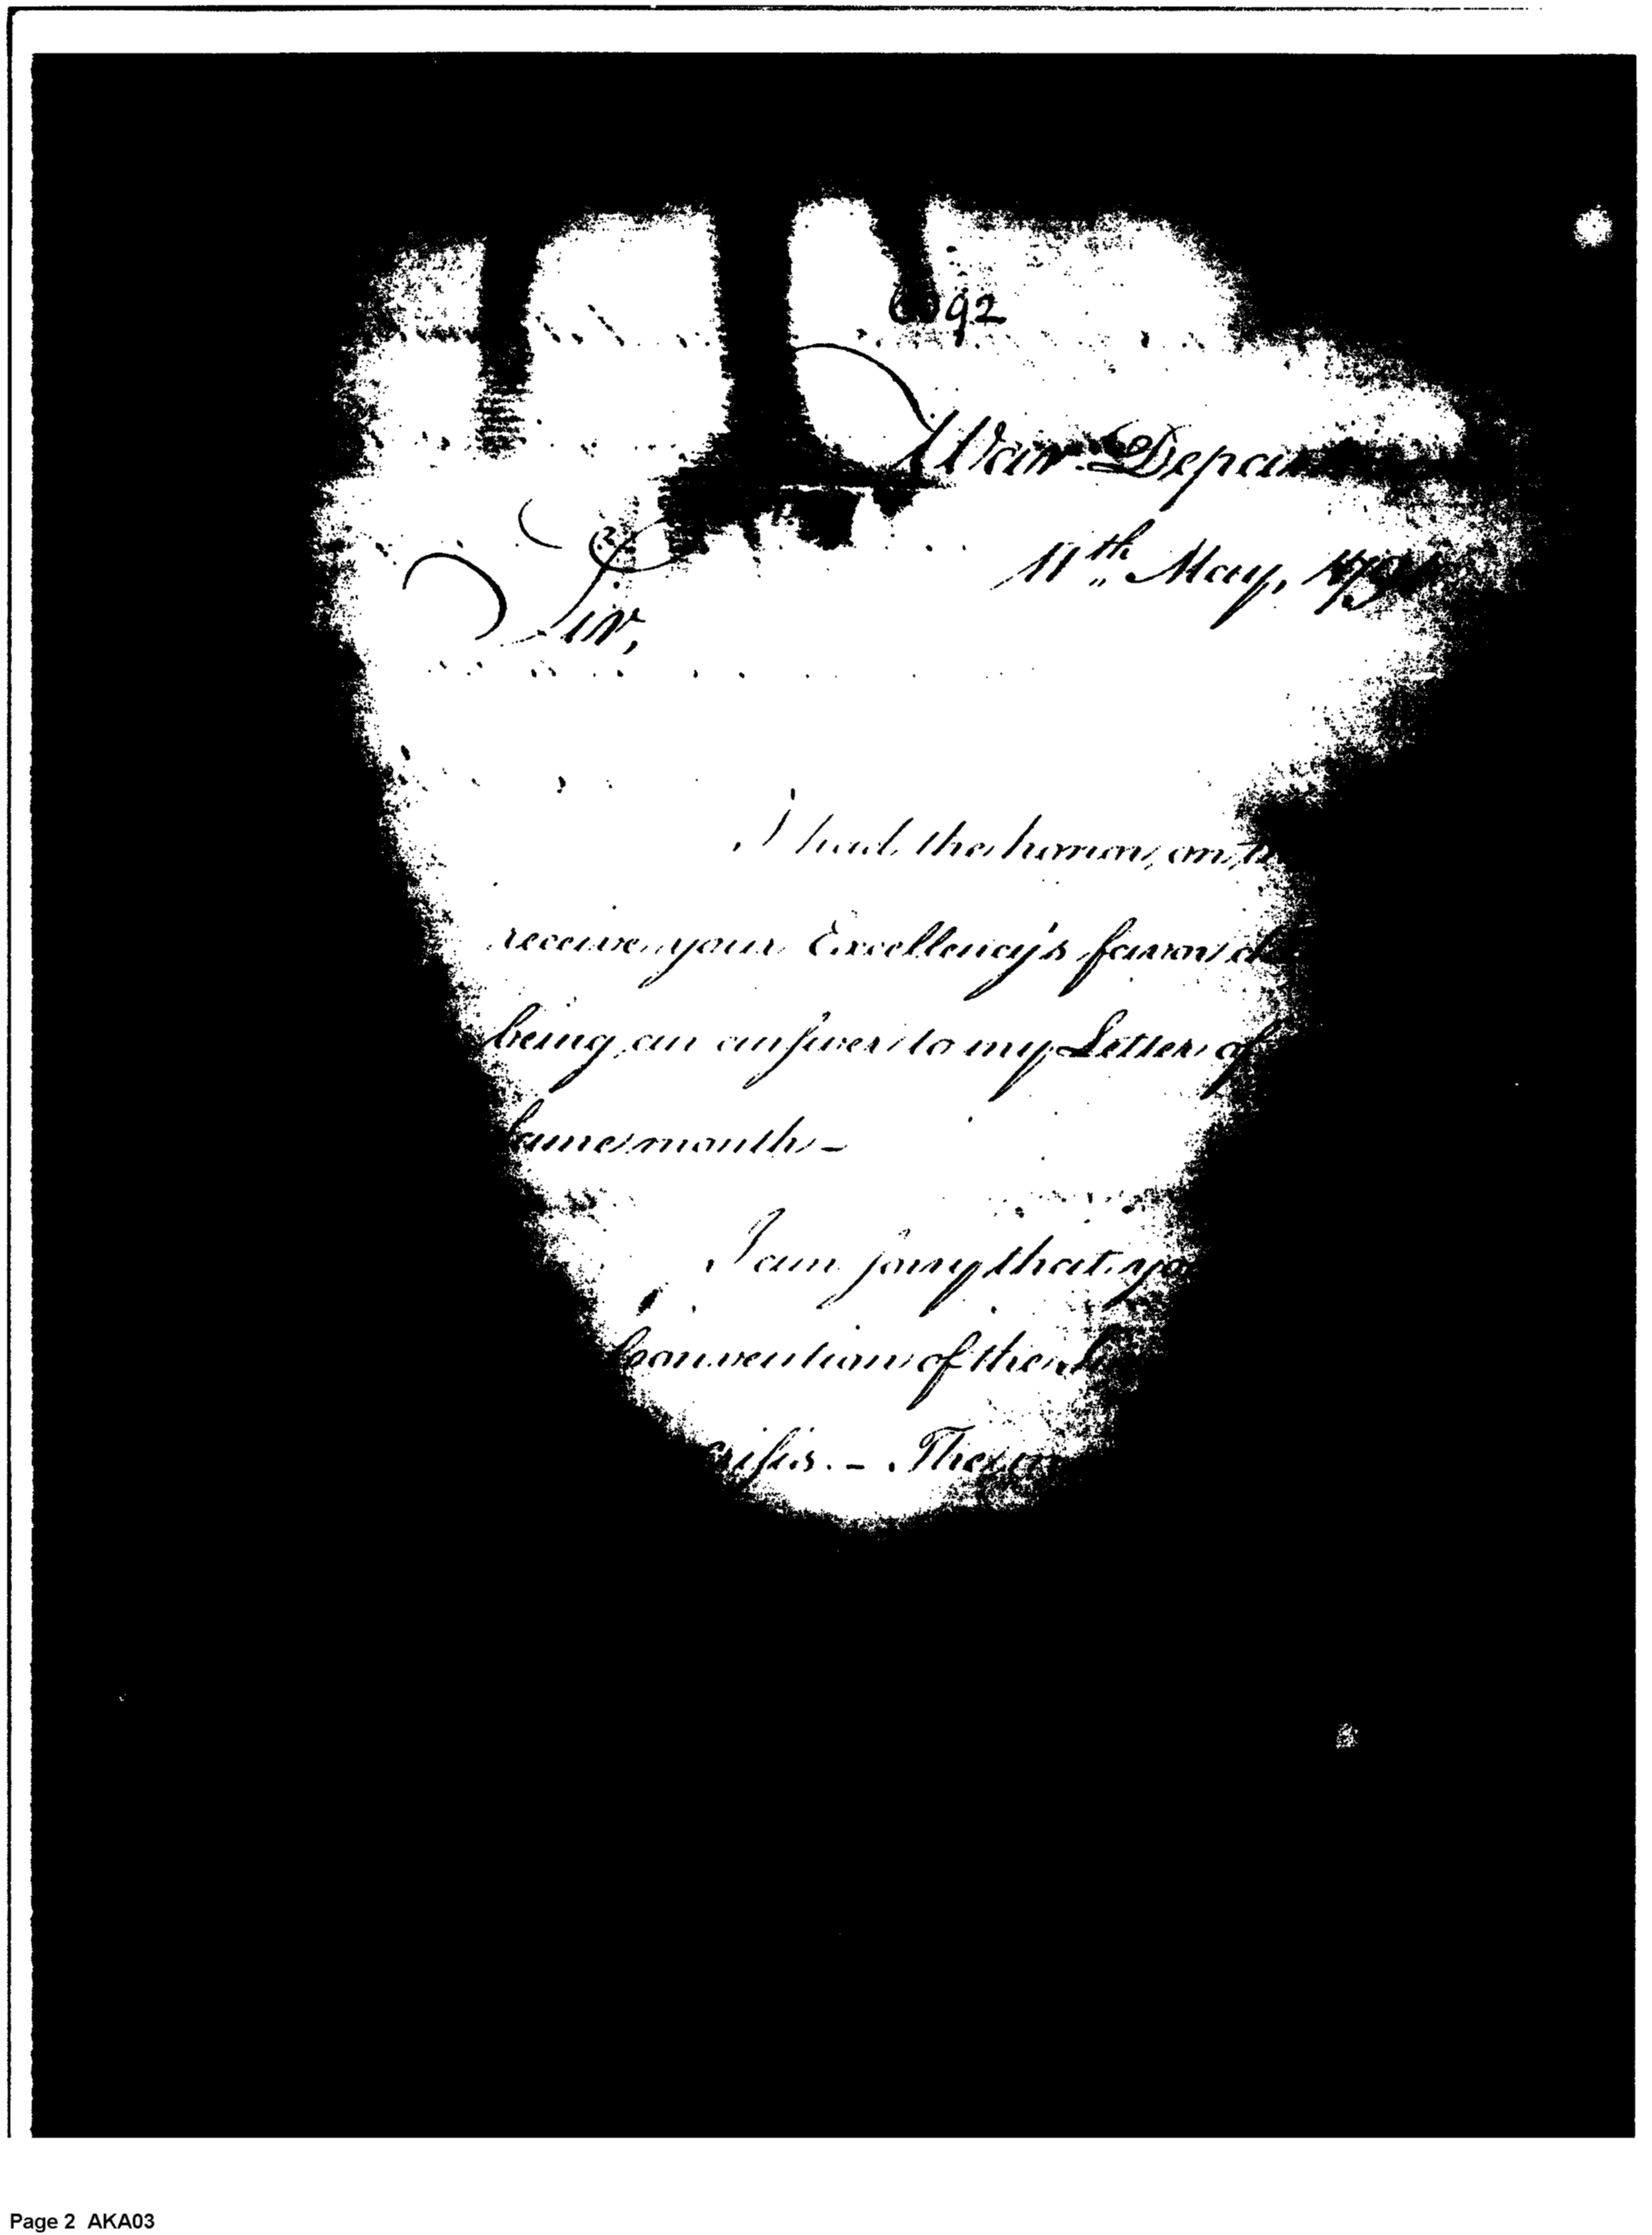 92
War Depa
11th May, 179
Sir,
I had the honor, on
receive your Excellency's favor
being an answer to my Letter of
same month –
I am sorry that yo
Convention of the
crisis. – The
Page 2 AKA03